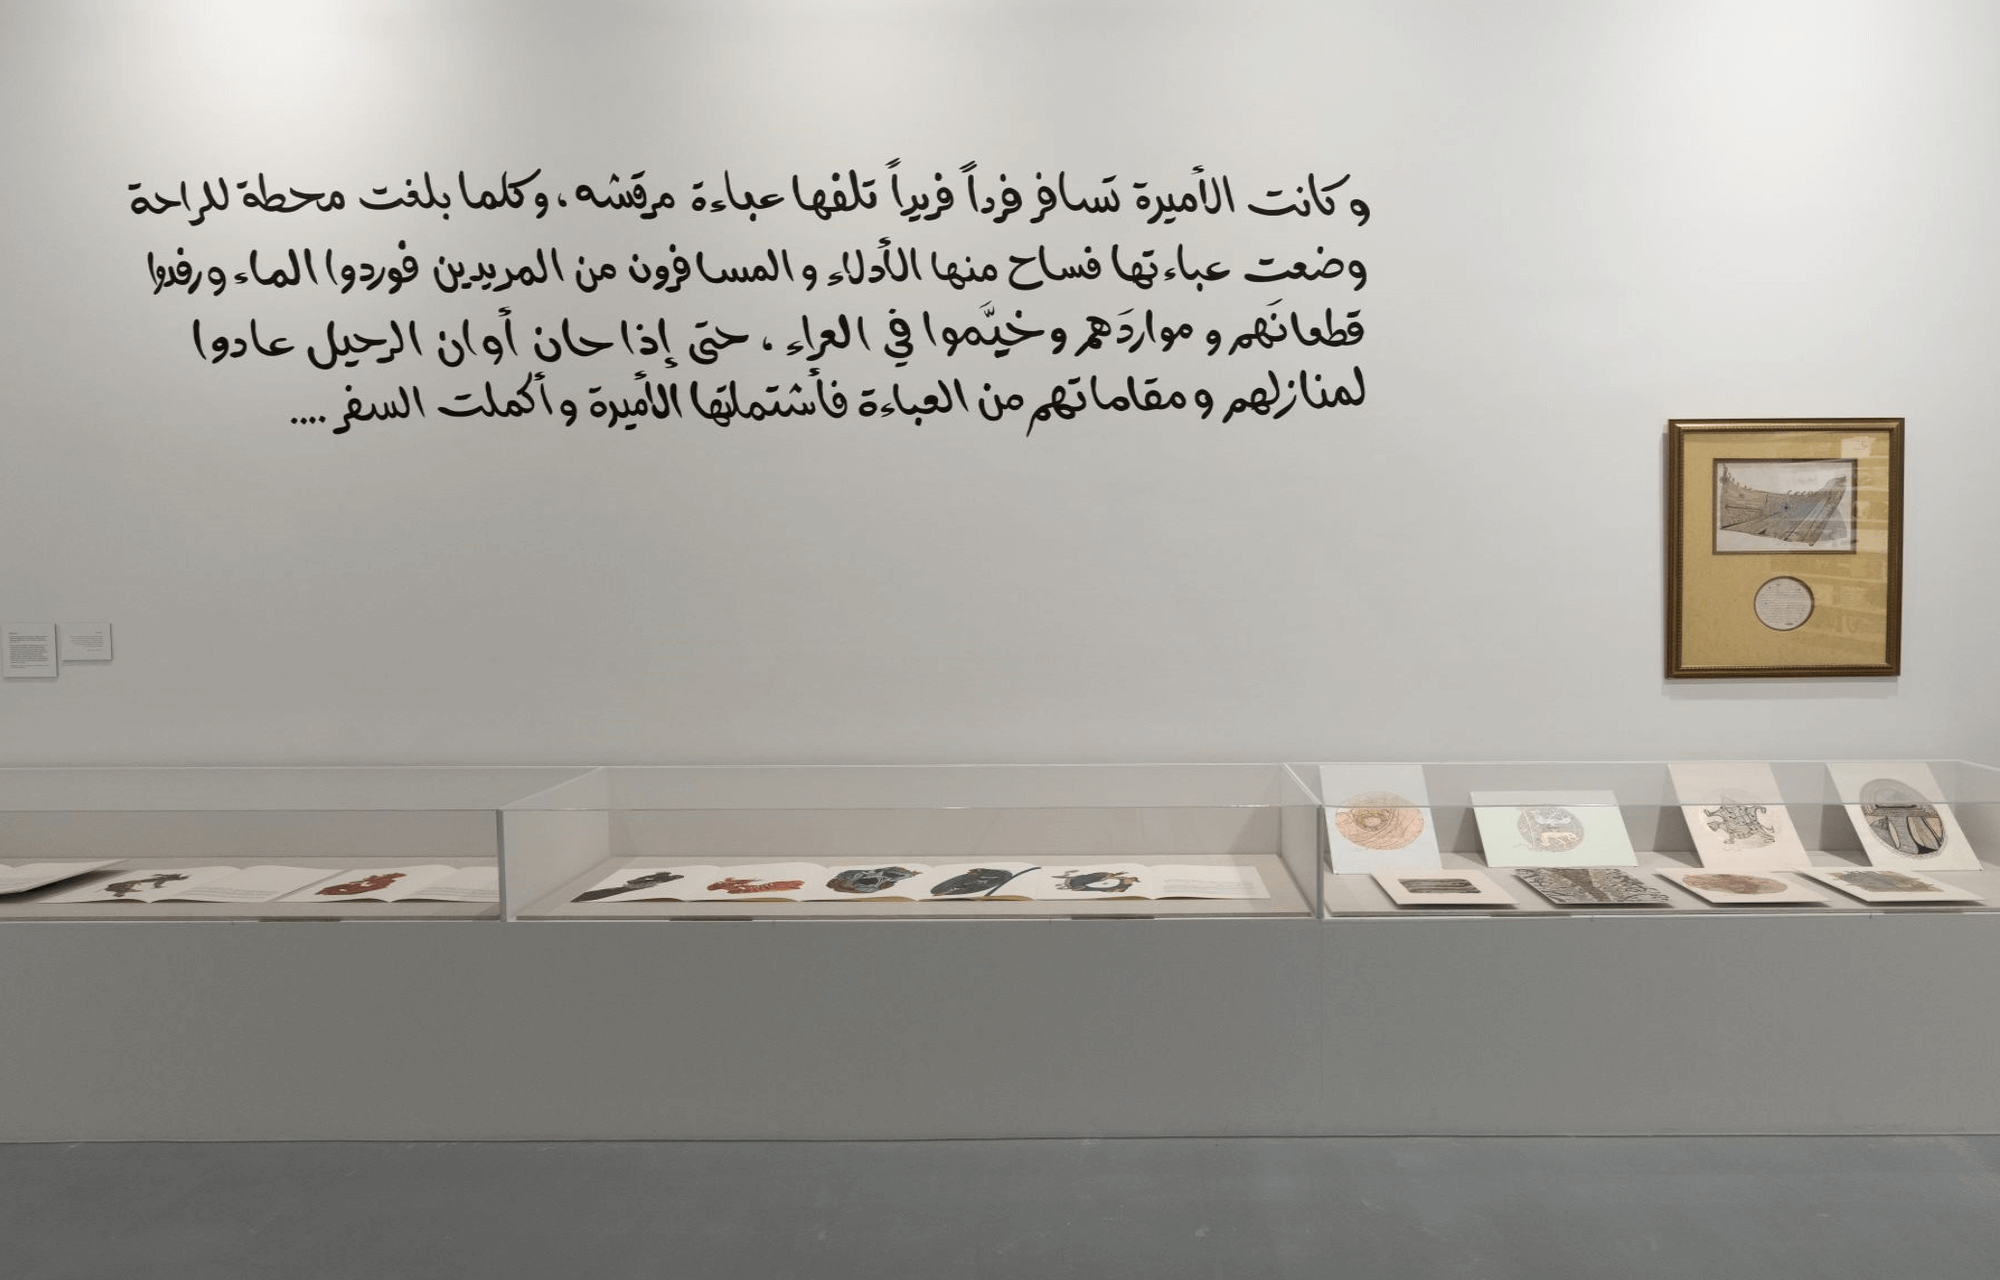 وكانت الأميرة تسافر فرداً فريداً تلفها عباءة مرقشه، وكلما بلغت محطة للراحة
وضعت عباءتها فساح منها الأدلاء و المسافرون من المريدين فوردوا الماء ورفدوا
قطعانَهم و مواردَهم وخيَّموا في العراء ، حتى إذا حان أوان الرحيل عادوا
لمنازلهم و مقاماتهم من العباءة فأشتملتها الأميرة و أكملت السفر ....